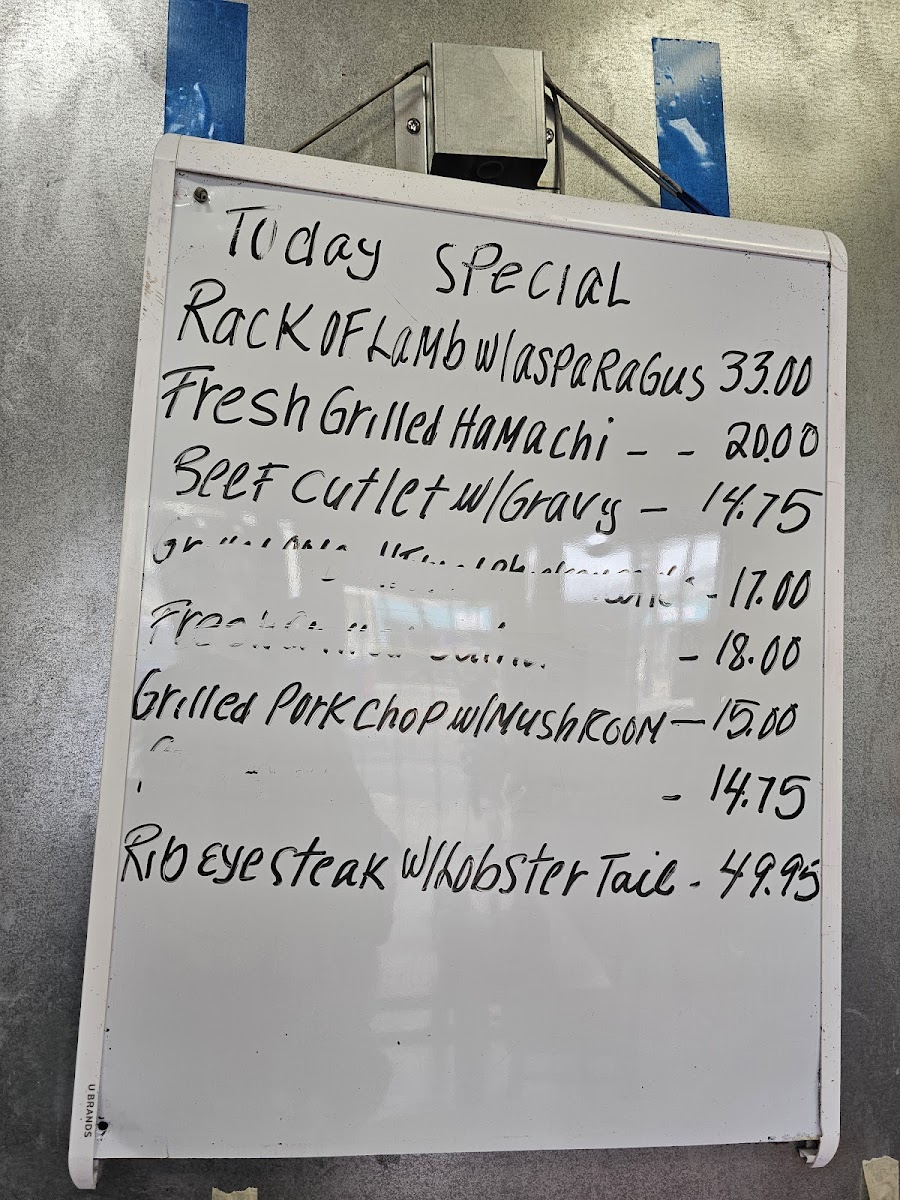 Today Special
Rack of Lamb w/asparagus 33.00
Fresh Grilled Hamachi - - 20.00
Beef Cutlet w/Gravy - 14.75
- 17.00
Fresh - 18.00
Grilled Pork Chop w/Mushroom - 15.00
- 14.75
Rib eye steak w/Lobster Tail - 49.95
U BRANDS